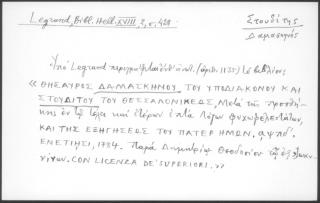 Legrand, Bibl. Hell. XVIII, 2, σ. 428
Στουδίτης
Δαμασκηνός
Ὑπὸ Legrand περιγράφεται ἐν (ἀριθ. 1135) τὸ βιβλίον:
« ΘΗΣΑΥΡΟΣ ΔΑΜΑΣΚΗΝΟΥ ΤΟΥ ΥΠΟΔΙΑΚΟΝΟΥ ΚΑΙ
ΣΤΟΥΔΙΤΟΥ ΤΟΥ ΘΕΣΣΑΛΟΝΙΚΕΩΣ, Μετὰ τῆς προσθή-
κης ἐν τῷ τέλει καὶ ἑτέρων ἑπτὰ λόγων ψυχωφελεστάτων,
ΚΑΙ ΤΗΣ ΕΞΗΓΗΣΕΩΣ ΤΟΥ ΠΑΤΕΡ ΗΜΩΝ, αψπδ'.
ΕΝΕΤΙΗΣΙ, 1784. Παρὰ Δημητρίῳ Θεοδοσίου τῷ ἐξ Ἰωαν-
νίνων. CON LICENZA DE' SUPERIORI. »